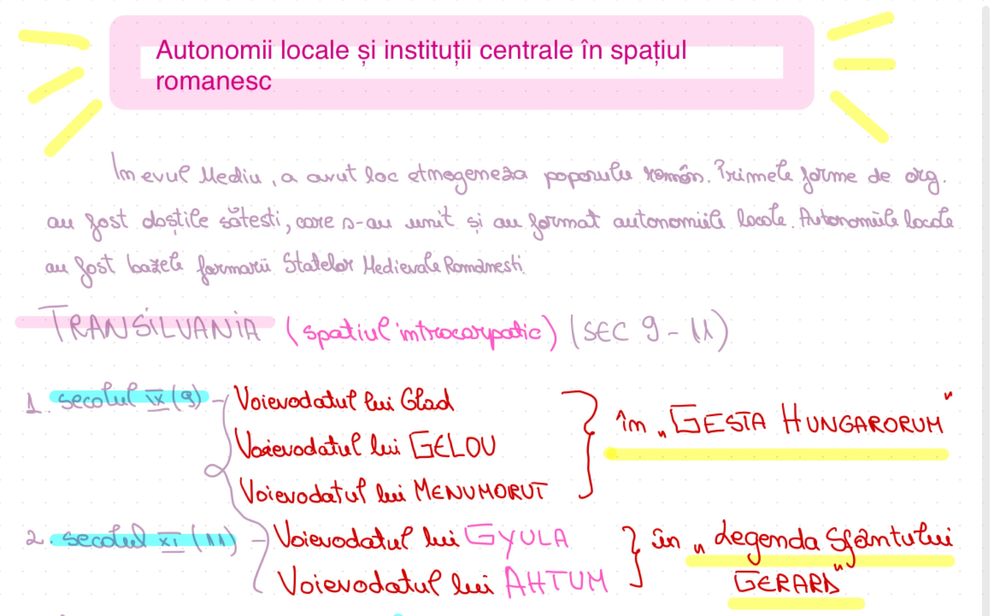 Autonomii locale și instituții centrale în spațiul
romanesc
În evul Mediu, a avut loc etnogeneza poporului român. Primele forme de org.
au fost obștile sătești, care s-au unit și au format autonomiile locale. Autonomiile locale
au fost bazele formării Statelor Medievale Românești.
TRANSILVANIA (spațiul intracarpatic) (SEC 9 - 11)
1. secolul IX (9) - Voievodatul lui Glad
Voievodatul lui GELOU
Voievodatul lui MENUMORUT
în „GESTA HUNGARORUM"
2. secolul XI (11) - Voievodatul lui GYULA
Voievodatul lui AHTUM
în „Legenda Sfântului
GERARD"